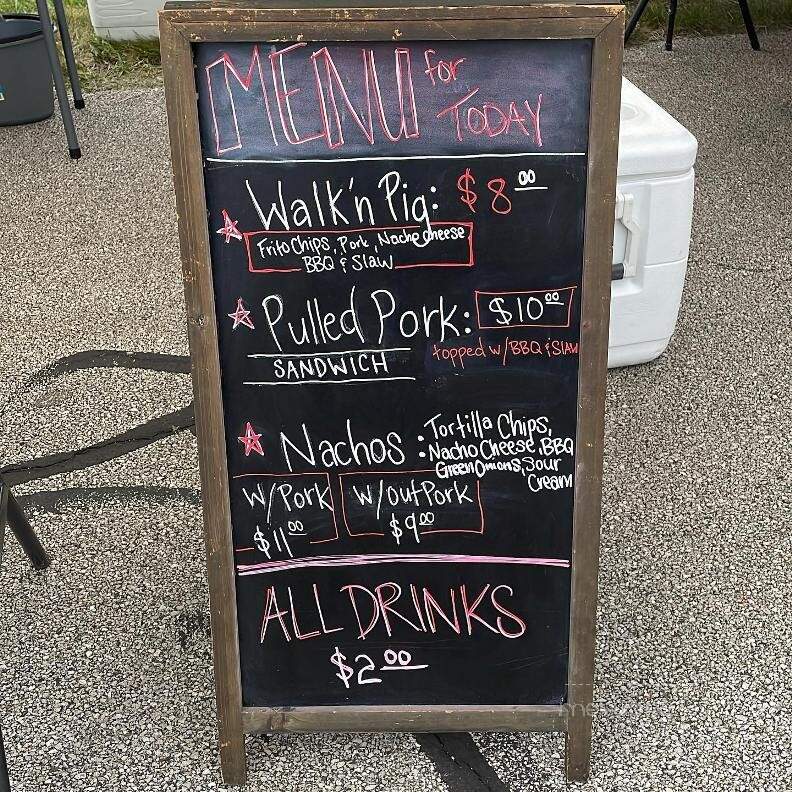 MENU for TODAY
Walk'n Pig: $8.00
Frito Chips, Pork, Nacho Cheese
BBQ & Slaw
Pulled Pork: $10.00
SANDWICH
topped w/ BBQ & Slaw
Nachos : Tortilla Chips,
Nacho Cheese, BBQ
Green Onions, Sour
Cream
w/ Pork
$11.00
w/out Pork
$9.00
ALL DRINKS
$2.00